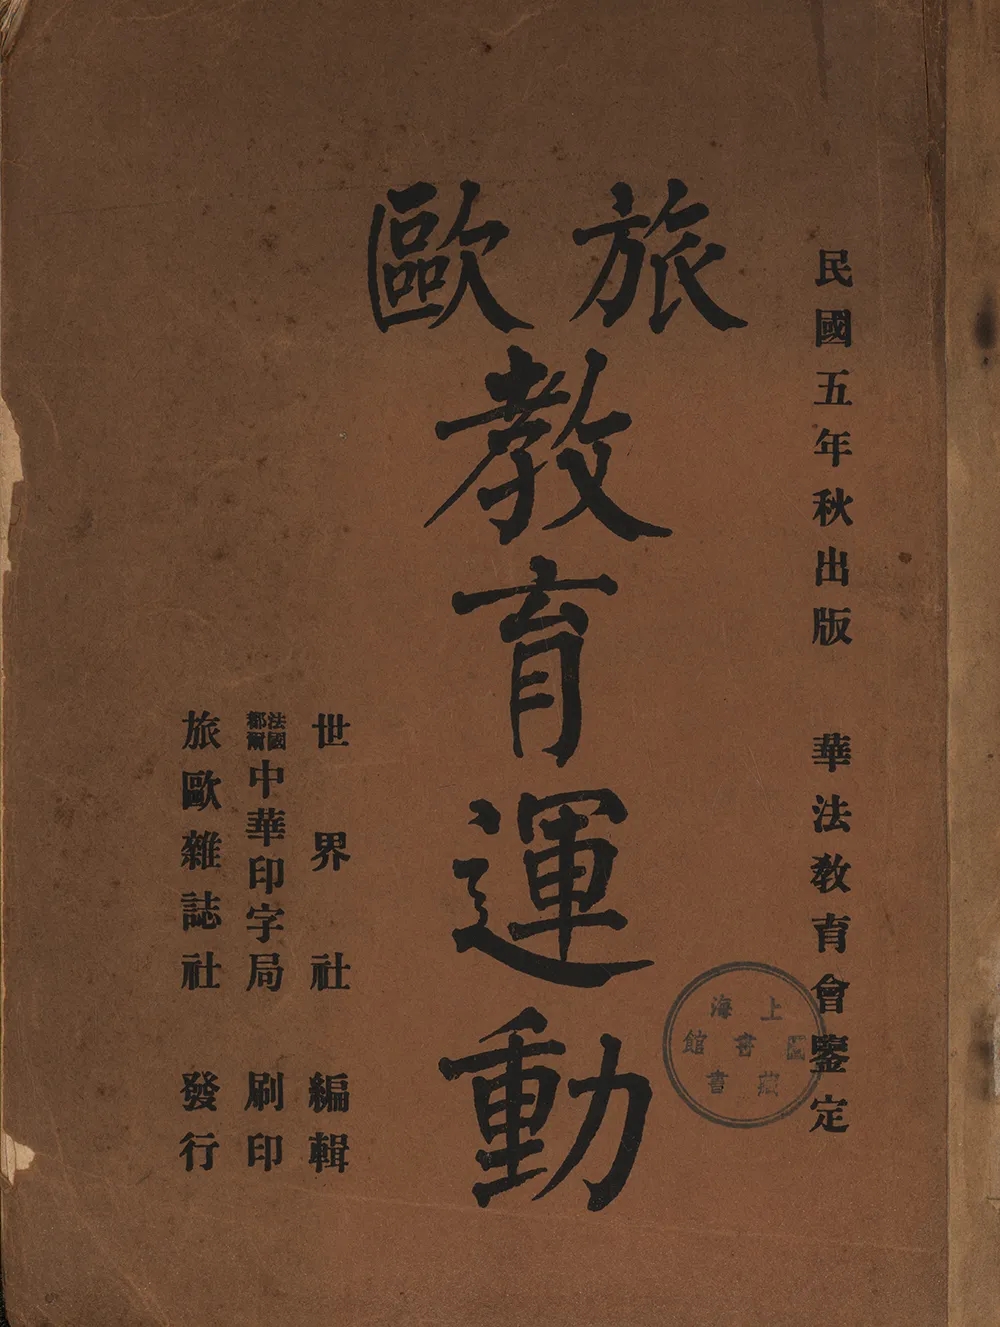 民國五年秋出版　華法教育會鑒定
旅歐
教育運動
世界社編輯
法國都爾中華印字局刷印
旅歐雜誌社發行
上海
圖書館
藏書